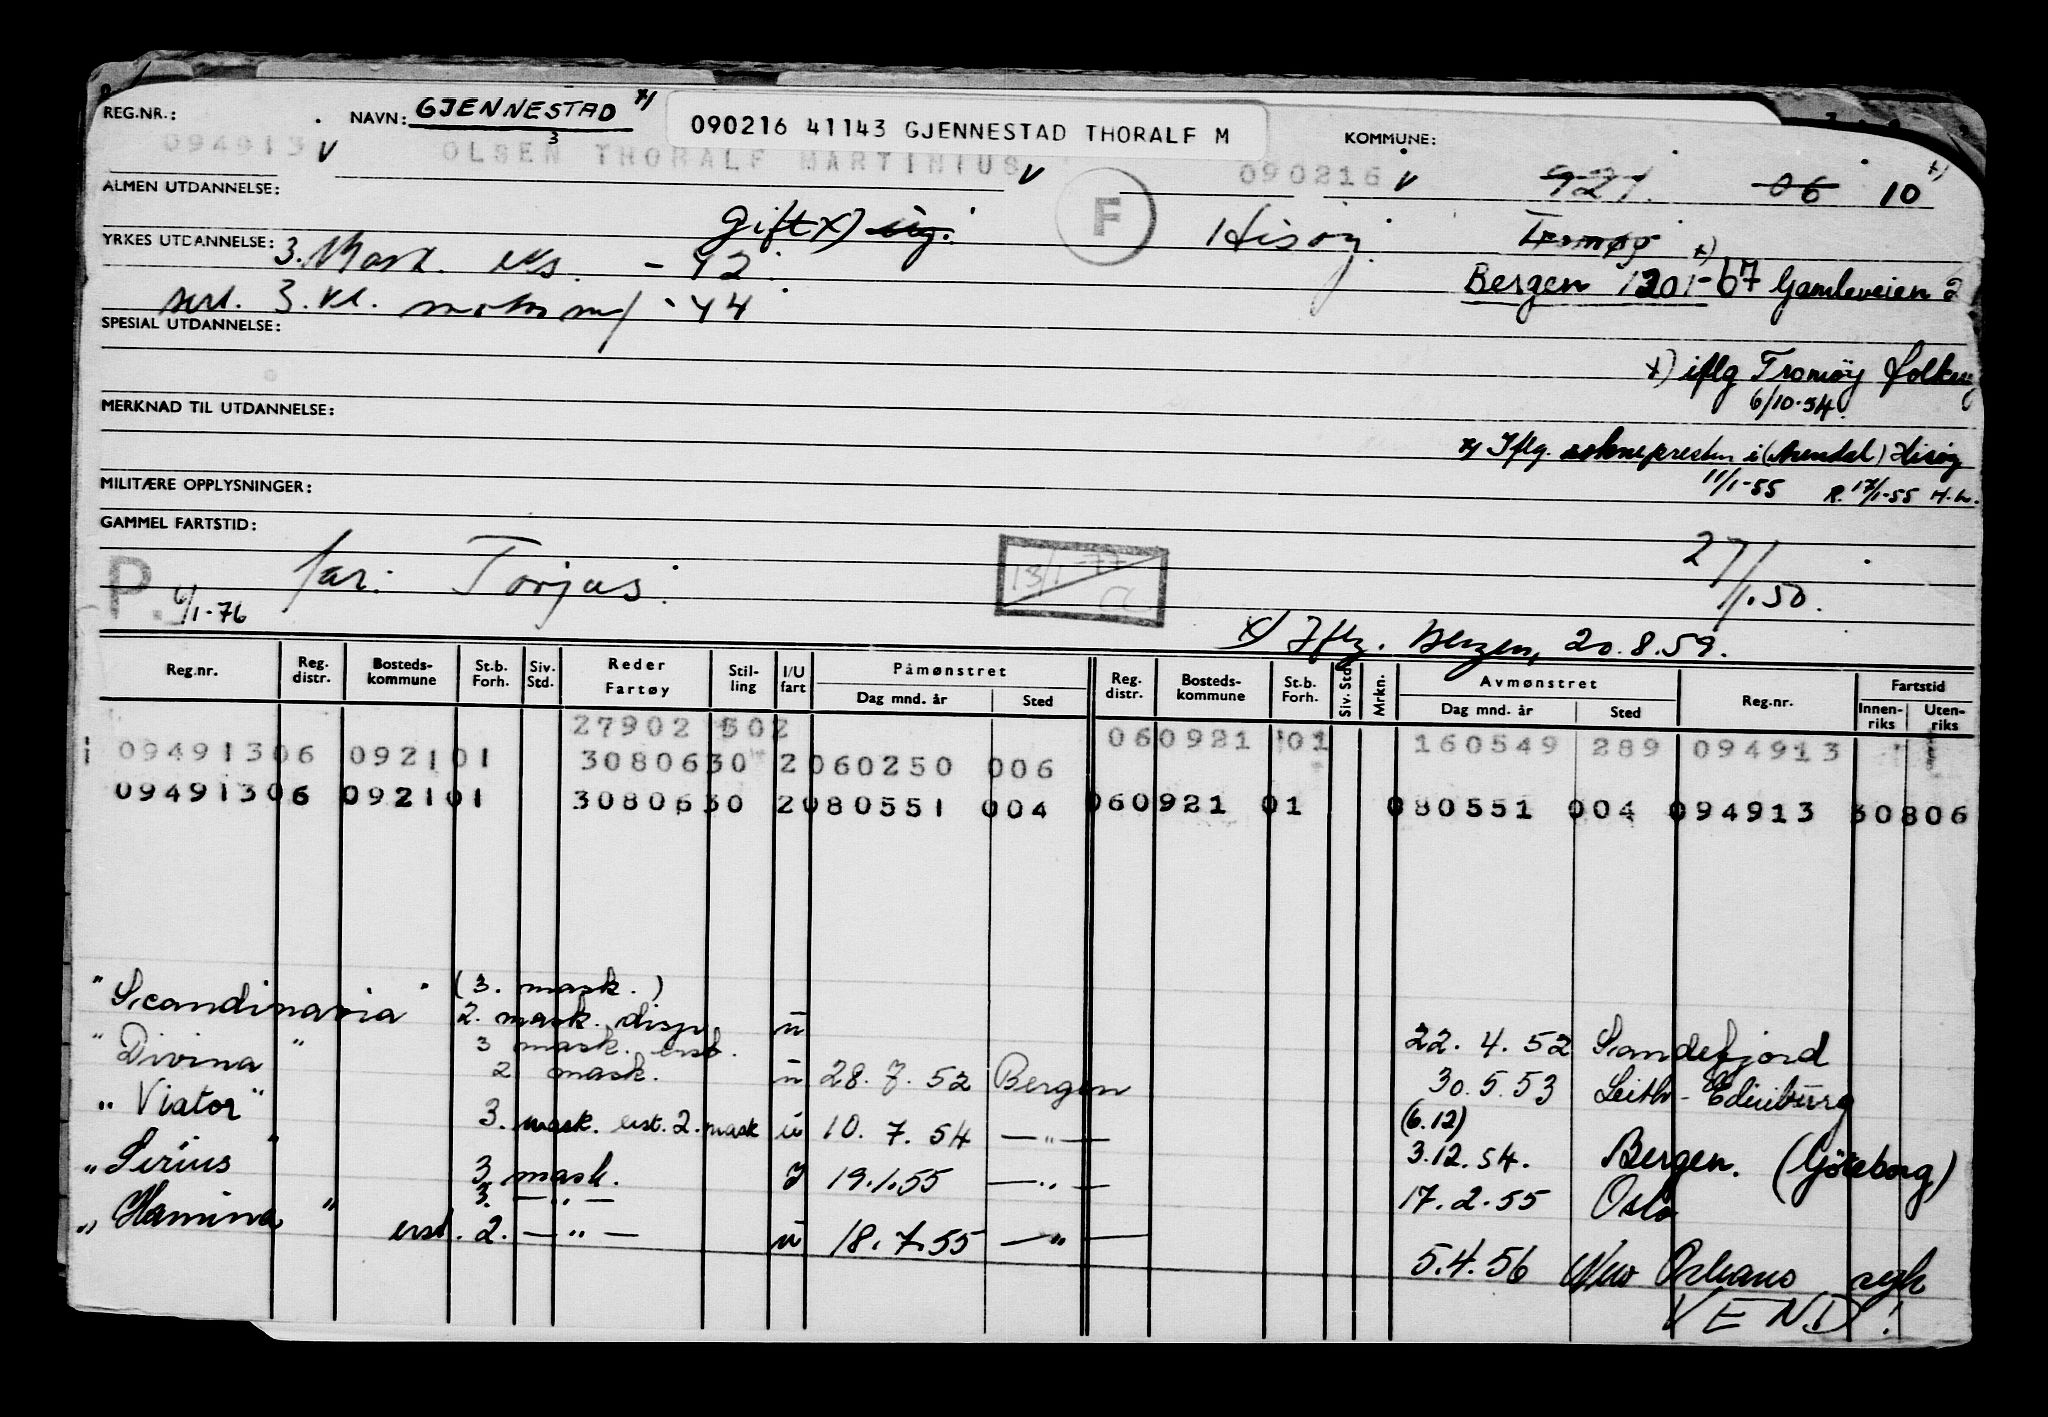 REG.NR.: NAVN: GJENNESTAD x) 090216 41143 GJENNESTAD THORALF M KOMMUNE:
094913 V OLSEN THORALF MARTINIUS V 090216 V 921 06 10 x)
ALMEN UTDANNELSE:
Gift x) ug. F Hisøy. Tromøy x)
YRKES UTDANNELSE: 3. Mask. eks. - 42.
Bergen 1201-67 Gamleveien 2
sert. 3. kl. motorm/ - 44
SPESIAL UTDANNELSE:
x) iflg Tromøy folkereg
6/10-54.
MERKNAD TIL UTDANNELSE:
x) Iflg. soknepresten i (Arendal) Hisøy
11/1-55 R. 17/1-55 H.L.
MILITÆRE OPPLYSNINGER:
GAMMEL FARTSTID:
P. 6/1-76 far: Torjus. 13/1-77 CC 27/1.50.
x) Iflg. Bergen, 20.8.59.
Reg.nr. Reg. distr. Bosteds- kommune St.b. Forh. Siv. Std. Reder Fartøy Stil- ling I/U fart Påmønstret Reg. distr. Bosteds- kommune St.b. Forh. Siv. Std. Mrkn. Avmønstret Reg.nr. Fartstid
Dag mnd. år Sted Dag mnd. år Sted Innen- riks Uten- riks
27902 502 060921 01 160549 289 094913
09491306 092101 3080630 2060250 006
09491306 092101 3080630 2080551 004 060921 01 080551 004 094913 30806
"Scandinavia" (3. mask.)
2. mask. disp. u 22. 4. 52 Sandefjord
"Divina" 3 mask. erst.
2 mask. u 28. 7. 52 Bergen 30.5.53 Leith - Edinburg
"Viator" 3. mask. erst. 2. mask u 10. 7. 54 — " — (6.12)
3.12.54. Bergen. (Göteborg)
"Sirius" 3 mask. I 19.1.55 — " — 17. 2. 55 Oslo
"Hamina" 3. — " —
erst. 2. — " — u 18.7.55 — " — 5.4.56 New Orleans syk
VEND!